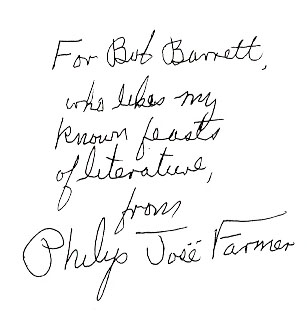 For Bob Barrett,
who likes my
known feasts
of literature,
from
Philip José Farmer